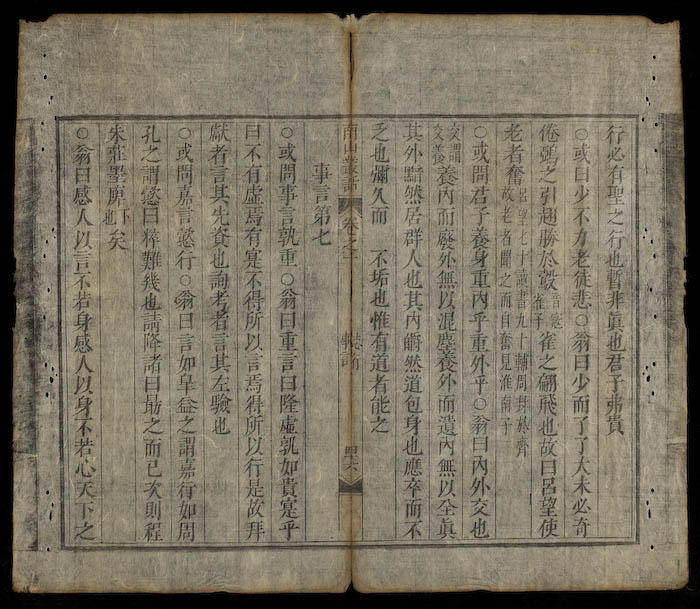 行必有聖之行也暫非眞也君子弗貴
○或曰少不力老徒悲○翁曰少而了了大未必奇
倦鵶之引趐勝於鷇雀之翩飛也故曰呂望使
老者奮呂望七十讀書九十輔周封於齊故老者聞之而自奮見淮南子
○或問君子養身重內乎重外乎○翁曰內外交也
交謂交養養內而廢外無以混塵養外而遺內無以全眞
其外黯然居群人也其內皭然道包身也應卒而不
乏也彌久而 不垢也惟有道者能之
南山叢話 卷之一 四六
事言第七
○或問事言孰重○翁曰重言曰隆虛孰如貴寔乎
曰不有虛焉有寔不得所以言焉得所以行是故拜
獻者言其先資也詢考者言其左驗也
○或問嘉言懿行○翁曰言如皐益之謂嘉行如周
孔之謂懿曰粹難幾也請降諸曰勗之而已次則程
朱莊墨靡下也矣
○翁曰感人以言不若身感人以身不若心天下之